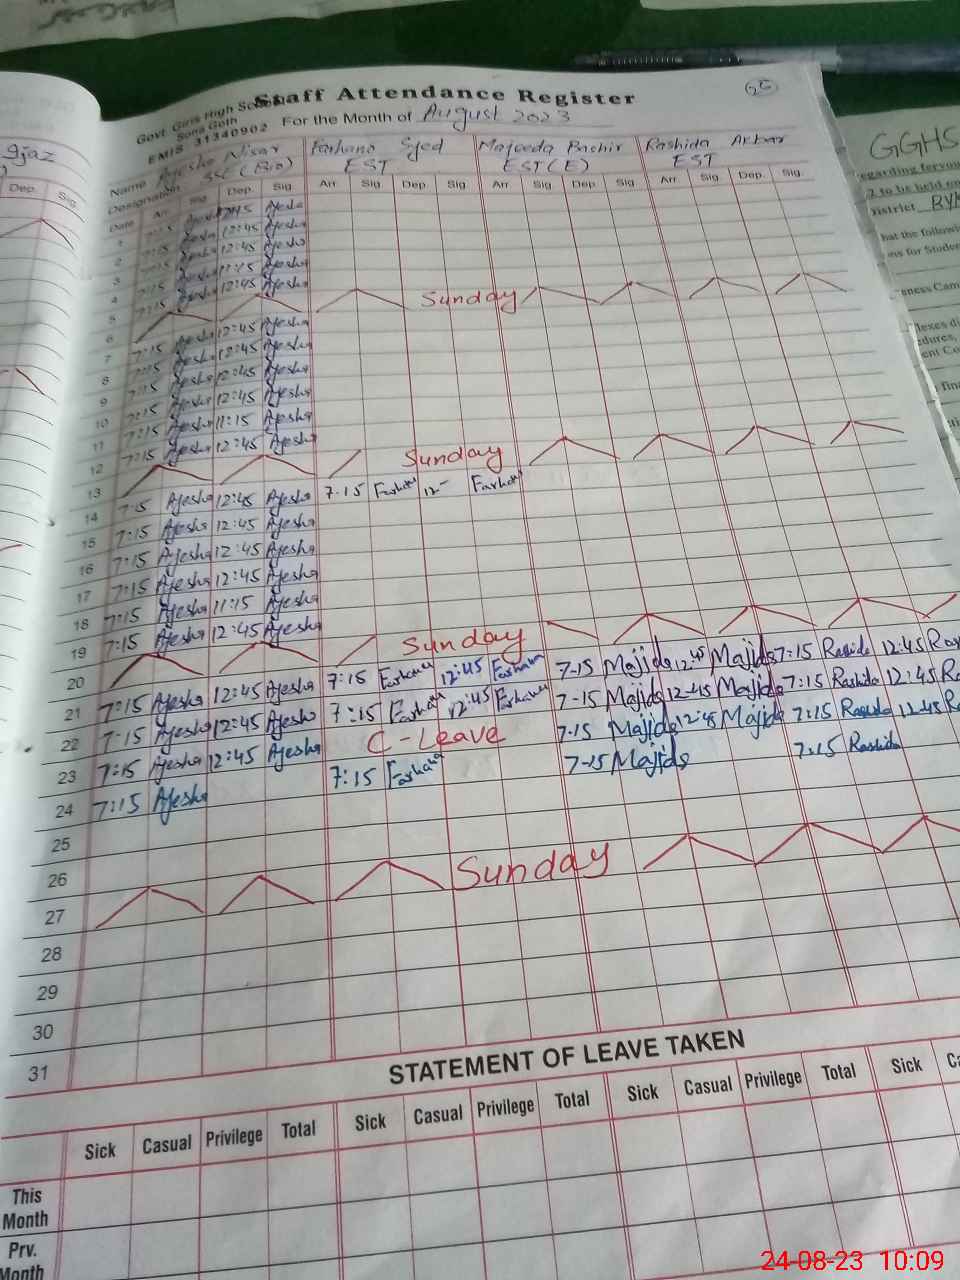 Staff Attendance Register
Govt. Girls High School
Sona Goth
EMIS 31340902
For the Month of August 2023
Name Ayesha Nisar Farhana Syed Majeeda Bashir Rashida Akbar
Designation SSE (Bio) EST EST (E) EST
Date Arr. Sig. Dep. Sig. Arr. Sig. Dep. Sig. Arr. Sig. Dep. Sig. Arr. Sig. Dep. Sig.
1 7:15 Ayesha 12:45 Ayesha
2 7:15 Ayesha 12:45 Ayesha
3 7:15 Ayesha 12:45 Ayesha
4 7:15 Ayesha 11:15 Ayesha
5 7:15 Ayesha 12:45 Ayesha
6 Sunday
7 7:15 Ayesha 12:45 Ayesha
8 7:15 Ayesha 12:45 Ayesha
9 7:15 Ayesha 12:45 Ayesha
10 7:15 Ayesha 12:45 Ayesha
11 7:15 Ayesha 11:15 Ayesha
12 7:15 Ayesha 12:45 Ayesha
13 Sunday
14 7:15 Ayesha 12:45 Ayesha 7:15 Farhana 12- Farhana
15 7:15 Ayesha 12:45 Ayesha
16 7:15 Ayesha 12:45 Ayesha
17 7:15 Ayesha 12:45 Ayesha
18 7:15 Ayesha 11:15 Ayesha
19 7:15 Ayesha 12:45 Ayesha
20 Sunday
21 7:15 Ayesha 12:45 Ayesha 7:15 Farhana 12:45 Farhana 7-15 Majida 12:45 Majida 7:15 Rashida 12:45
22 7:15 Ayesha 12:45 Ayesha 7:15 Farhana 12:45 Farhana 7-15 Majida 12-45 Majida 7:15 Rashida 12:45
23 7:15 Ayesha 12:45 Ayesha C-Leave 7-15 Majida 12:45 Majida 7:15 Rashida 12:45
24 7:15 Ayesha 7:15 Farhana 7-15 Majida 7:15 Rashida
25
26
27 Sunday
28
29
30
31
STATEMENT OF LEAVE TAKEN
Sick Casual Privilege Total Sick Casual Privilege Total Sick Casual Privilege Total Sick
This Month
Prv. Month
GGHS
24-08-23 10:09